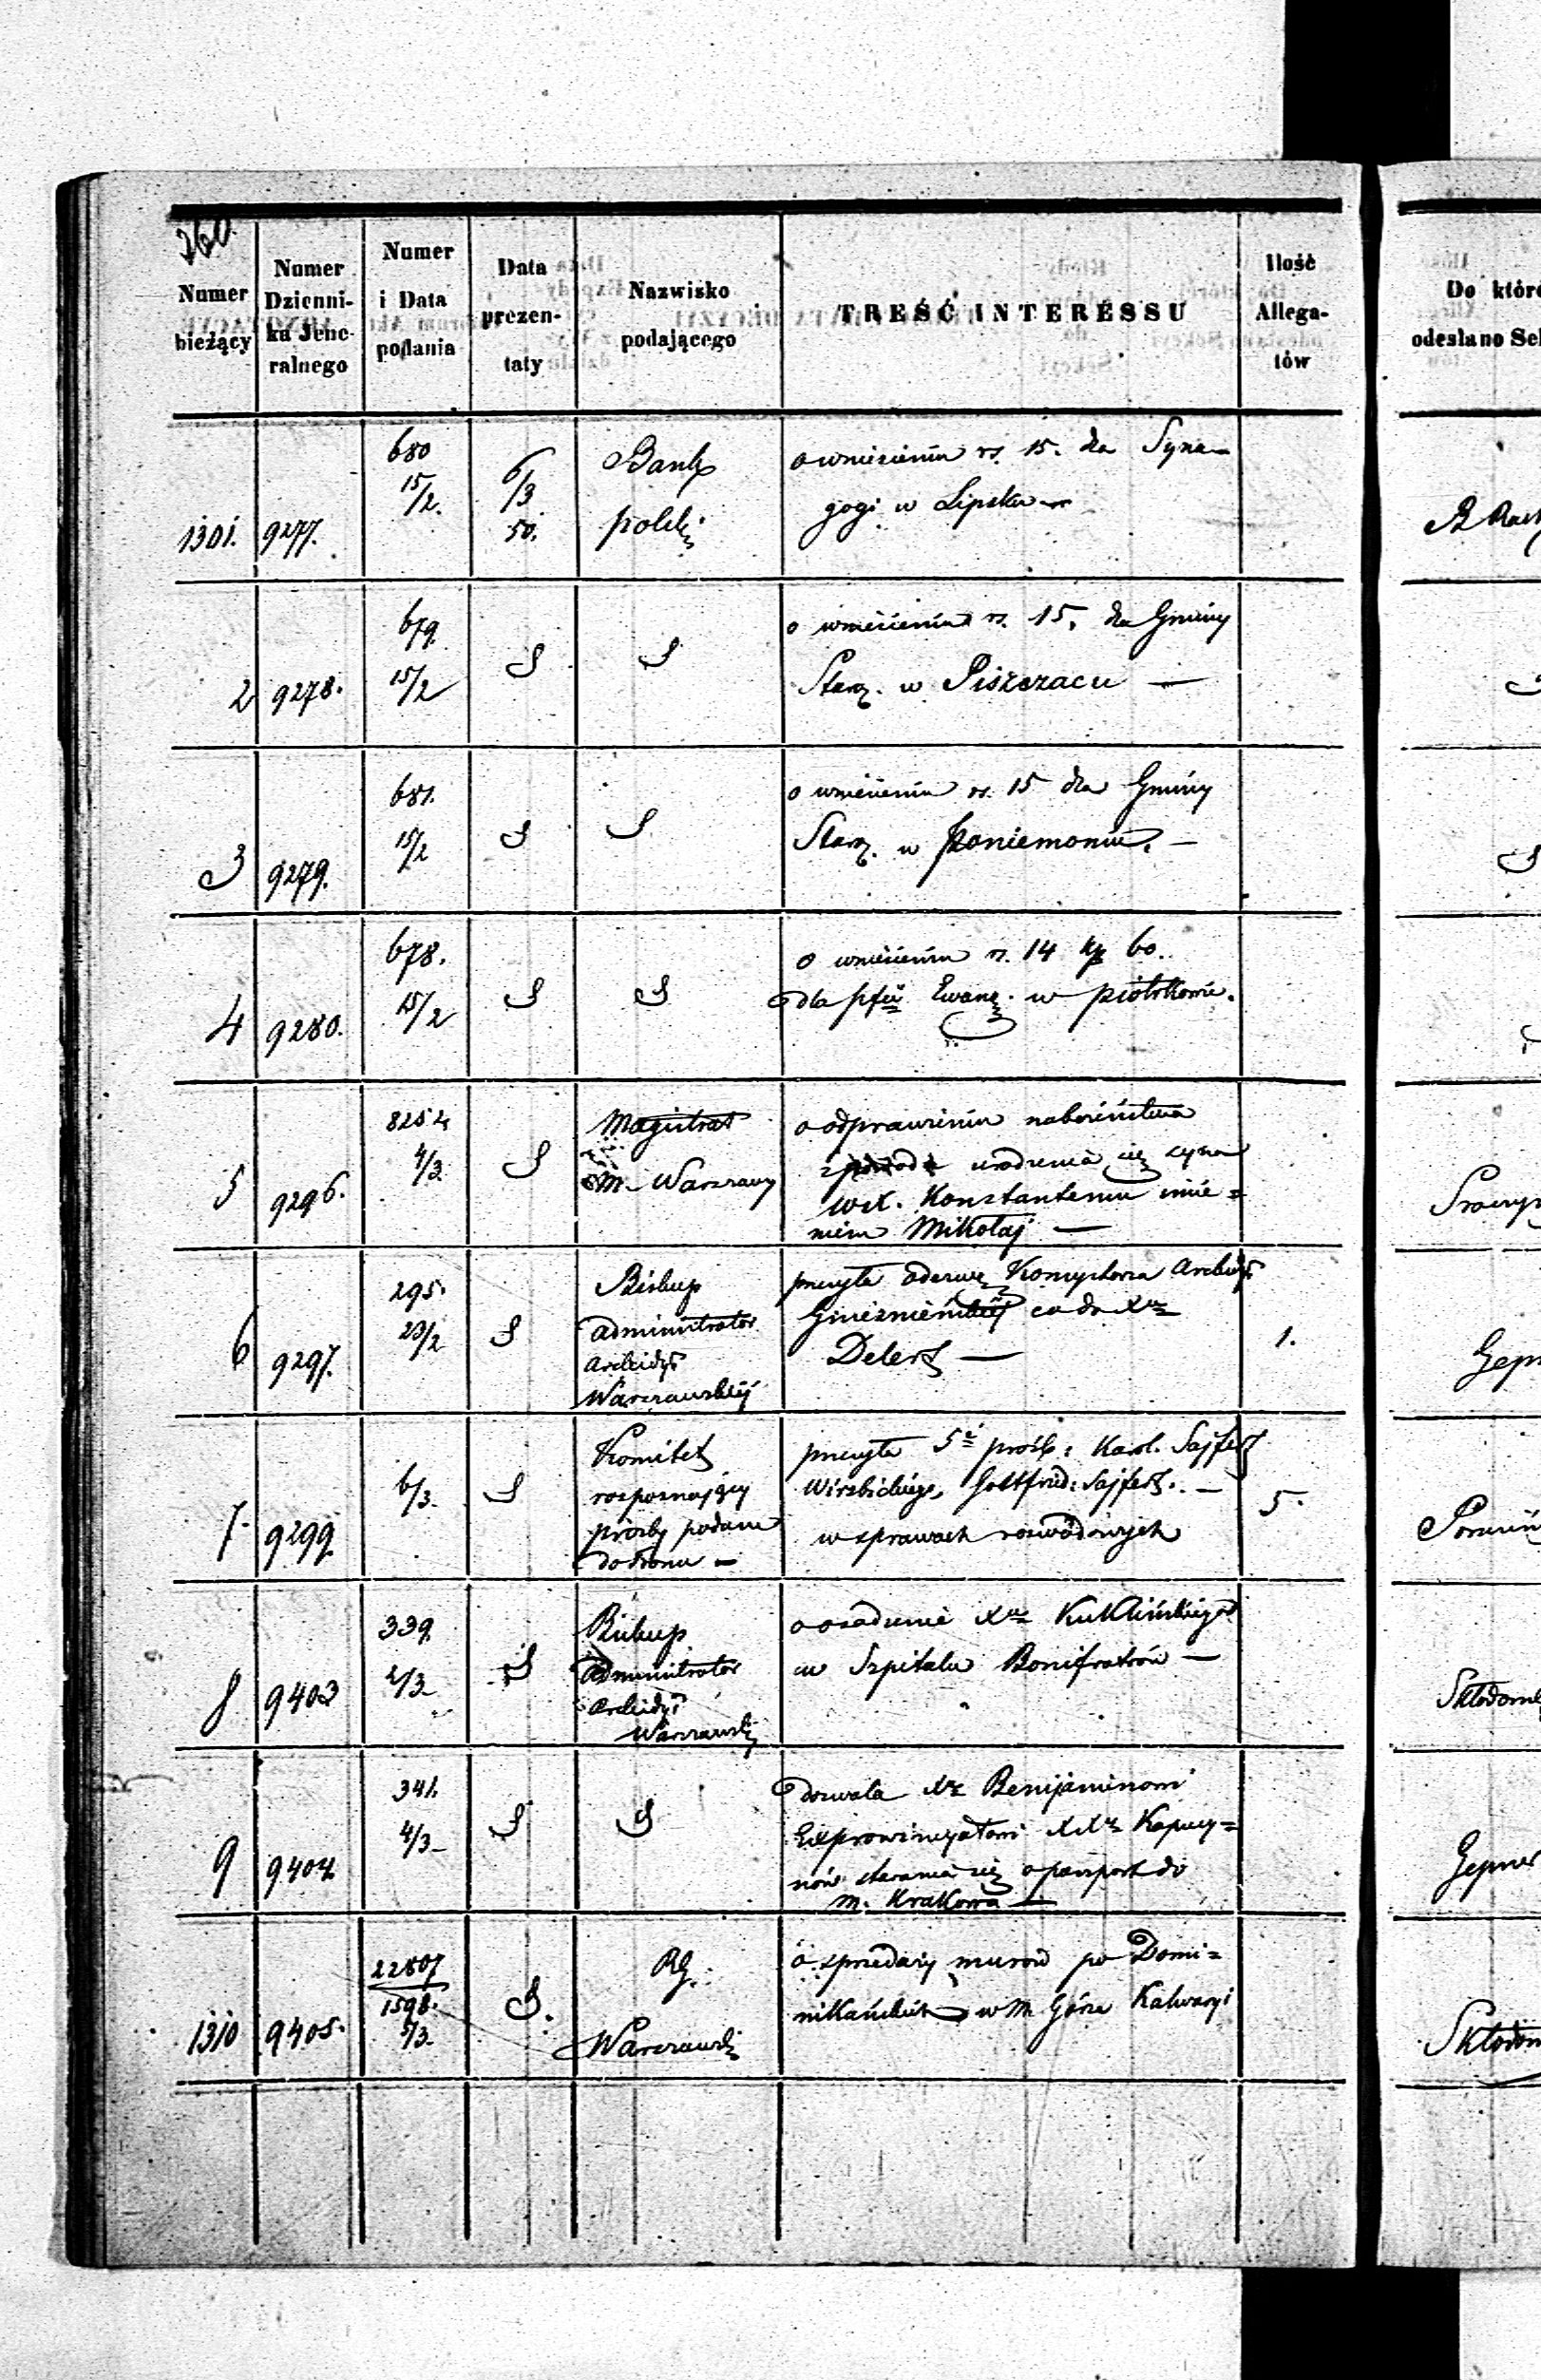 260.
Numer bieżący
Numer Dzienni-ka Jene-ralnego
Numer i Data podania
Data prezen-taty
Nazwisko podającego
TREŚĆ INTERESSU
Ilość Allega-tów
Do które
odesłano Sek
1301. 9277. 680 15/2. 6/3 50. Bank polski
o wniesieniu rs. 15. dla Syna-
gogi w Lipsku —
2 9278. 679. 15/2 S S
o wniesieniu rs. 15. dla Gminy
Starz. w Piszczacu —
S
3 9279. 681. 15/2 S S
o wniesieniu rs. 15 dla Gminy
Starz. w Poniemoniu. —
S
4 9280. 678. 15/2 S S
o wniesieniu rs. 14 kp 60.
dla pfii Ewang. w Piotrkowie.
5 9296. 8252 4/3. S
Magistrat
M. Warszawy
o odprawieniu nabożeństwa
z urodzenia się syna
W.X. Konstantemu imie=
niem Mikołaj —
6 9297. 295. 23/2 S
Biskup
Administrator
Archidyi
Warszawskiej
przesyła odezwę Konsystorza Archidy.
Gnieźnieńskiej co do Xa
Delert —
1.
Gepn
7. 9299. 6/3. S
Komitet
rozpoznający
prośby podane
do tronu —
przesyła 5 próśb: Karol. Sajfert
Wirzbickiego, Gottfried: Sajfert. —
w sprawach rozwodowych
5.
8 9403 339. 2/3 S
Biskup
Administrator
Archidyi
Warszawski
o osadzenie Xa Kuklińskiego
w Szpitalu Bonifratrów —
Skłodow
9 9404 341. 4/3 S S
dozwala Xu Benijaminowi
Exprowincyałowi XXw Kapucy=
nów starania się o paszport do
m. Krakowa —
Gepner
1310 9405. 22807 1598. 5/3. S.
RG.
Warszawski
o sprzedaży murów po Domi=
nikańskich w M. Góra Kalwaryi
Skłodow